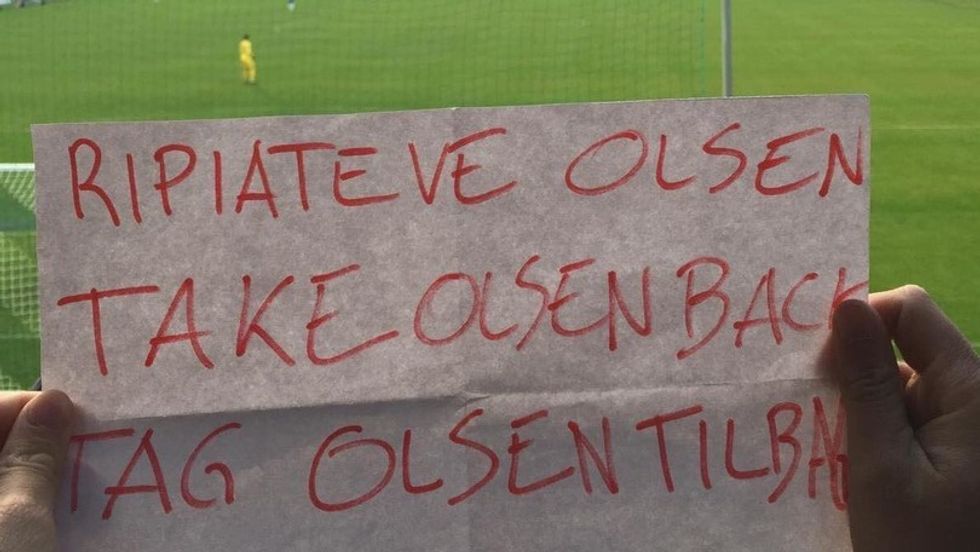 RIPIATEVE OLSEN
TAKE OLSEN BACK
TAG OLSEN TILBAG